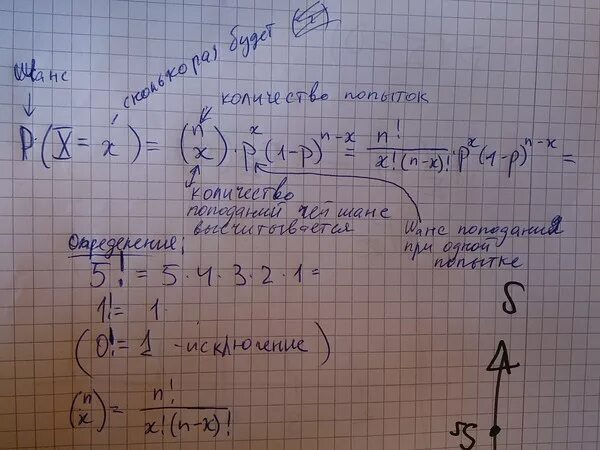 сколько раз будет
Шанс
количество попыток
P(X = x) = (n x) · p^x (1-p)^n-x = n! / x!(n-x)! · p^x (1-p)^n-x =
количество
поподаний чей шанс
высчитывается
Шанс поподания
при одной
попытке
Определение:
5! = 5·4·3·2·1 =
1! = 1
(0! = 1 - исключение)
(n x) = n! / x!(n-x)!